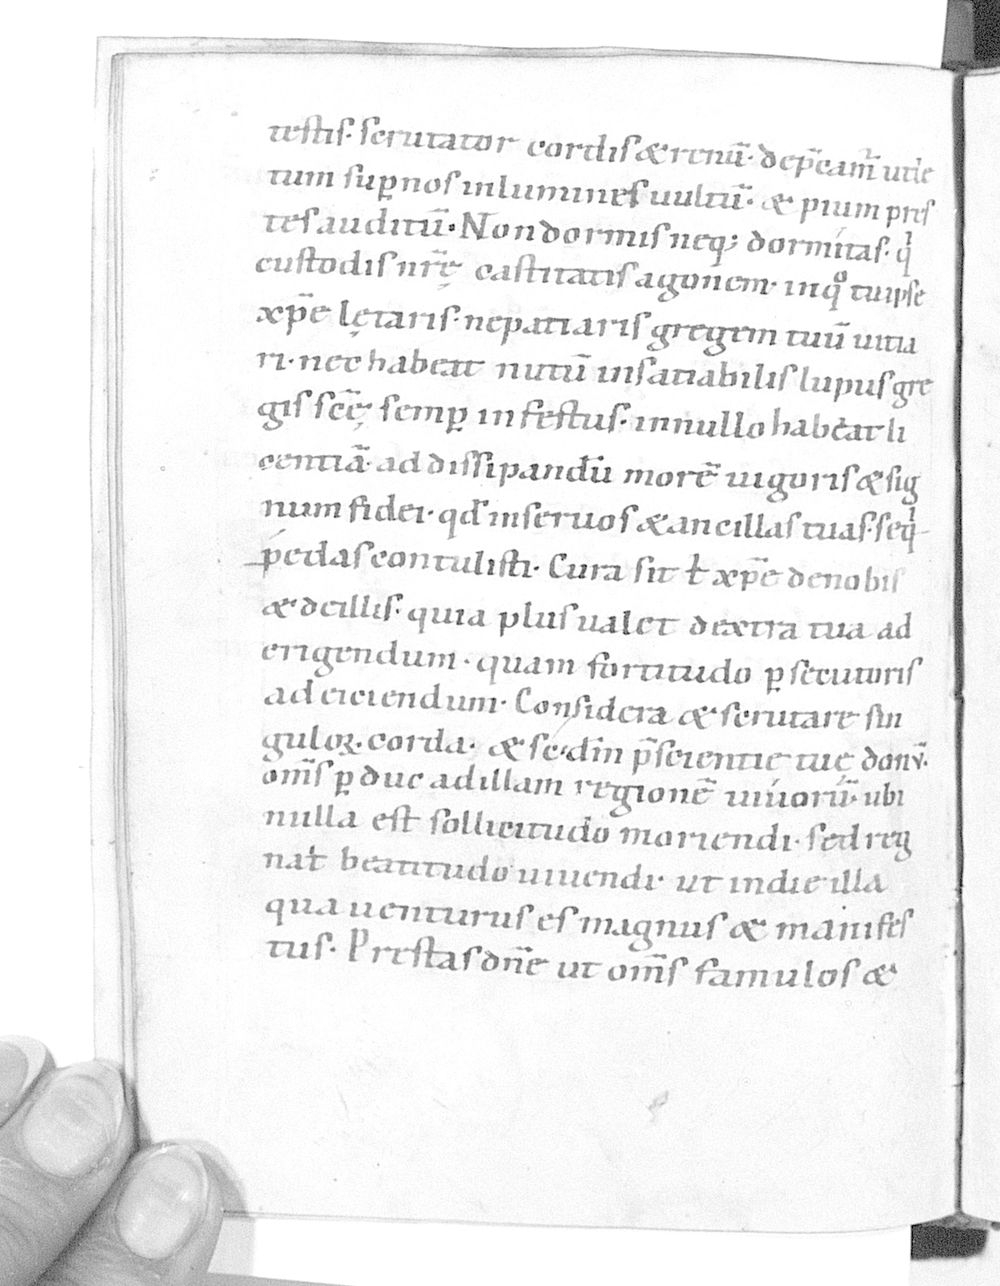 testis· scrutator cordis & renū· dep̄camr̄ ut ic
tum sup̱ nos in lumine uultū· & pium pres
tes auditū· Non dormis neq; dormitas· q̇
custodis nr̄ę castitatis agonem· in qͦ tu ipse
xp̄e lętaris· ne patiaris gregem tuū uitia
ri· nec habeat nutū insatiabilis lupus gre
gis scę̄ semp̱ infestus· in nullo habeat li
centiā· ad dissipandū morē uigoris & sig
num fidei· qd̄ in seruos & ancillas tuas· seq̇
pedas contulisti· Cura sit t̄ xp̄e de nobis
& de illis· quia plus ualet dextra tua ad
erigendum· quam fortitudo p̱secutoris
ad eiciendum· Considera & scrutare sin
guloꝝ· corda· & sc̄dm̄ p̄scientię tuę donū·
om̄s p̱duc ad illam regionē uiuorū· ubi
nulla est sollicitudo moriendi· sed reg
nat beatitudo uiuendi· ut in die illa
qua uenturus es magnus & manifes
tus· Prestas dn̄e ut om̄s famulos &